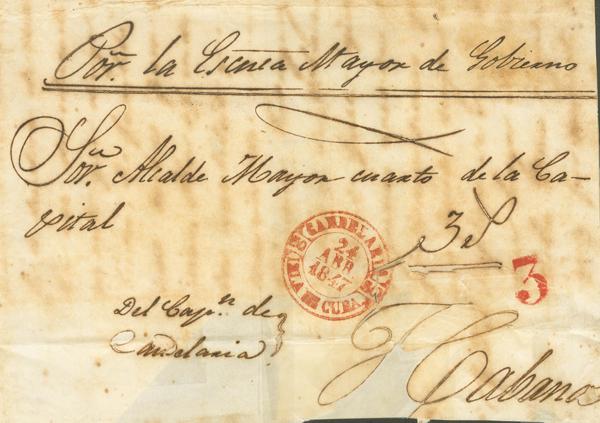 Por. la Escnia Mayor de Gobierno
Sor. Alcalde Mayor cuarto de la Ca-
pital
3
CANDELARIA
24
ABR
1847
ISLA DE CUBA
3
Del Capn. de
Candelaria.
Habana